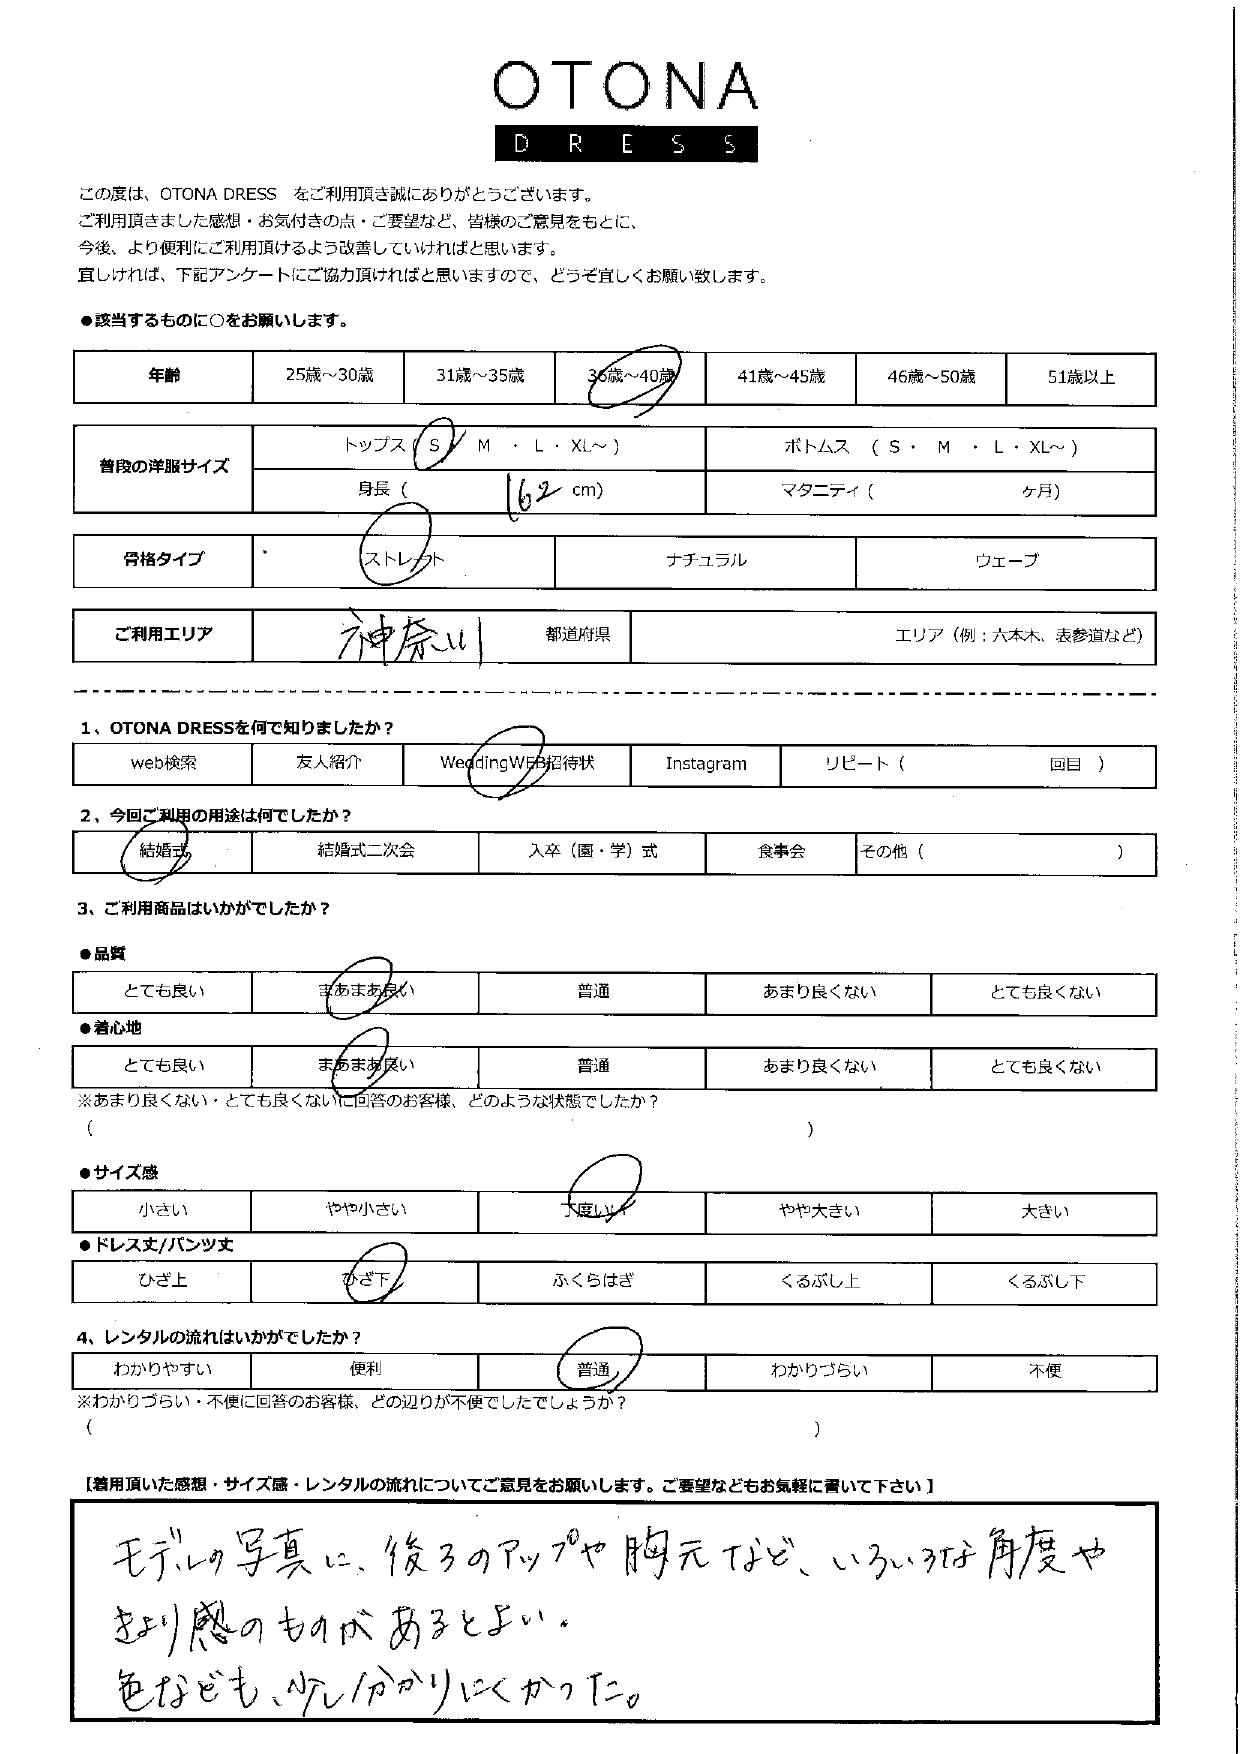 OTONA
DRESS
この度は、OTONA DRESS　をご利用頂き誠にありがとうございます。
ご利用頂きました感想・お気付きの点・ご要望など、皆様のご意見をもとに、
今後、より便利にご利用頂けるよう改善していければと思います。
宜しければ、下記アンケートにご協力頂ければと思いますので、どうぞ宜しくお願い致します。
●該当するものに○をお願いします。
年齢 25歳～30歳 31歳～35歳 36歳～40歳 41歳～45歳 46歳～50歳 51歳以上
普段の洋服サイズ トップス ( S ・ M ・ L ・ XL～ ) ボトムス ( S ・ M ・ L ・ XL～ )
身長 ( 162 cm) マタニティ ( ケ月)
骨格タイプ ストレート ナチュラル ウェーブ
ご利用エリア 神奈川 都道府県 エリア（例：六本木、表参道など）
1、OTONA DRESSを何で知りましたか？
web検索 友人紹介 WeddingWEB招待状 Instagram リピート ( 回目 )
2、今回ご利用の用途は何でしたか？
結婚式 結婚式二次会 入卒（園・学）式 食事会 その他 ( )
3、ご利用商品はいかがでしたか？
●品質
とても良い まあまあ良い 普通 あまり良くない とても良くない
●着心地
とても良い まあまあ良い 普通 あまり良くない とても良くない
※あまり良くない・とても良くないに回答のお客様、どのような状態でしたか？
( )
●サイズ感
小さい やや小さい 丁度いい やや大きい 大きい
●ドレス丈/パンツ丈
ひざ上 ひざ下 ふくらはぎ くるぶし上 くるぶし下
4、レンタルの流れはいかがでしたか？
わかりやすい 便利 普通 わかりづらい 不便
※わかりづらい・不便に回答のお客様、どの辺りが不便でしたでしょうか？
( )
【着用頂いた感想・サイズ感・レンタルの流れについてご意見をお願いします。ご要望などもお気軽に書いて下さい】
モデルの写真に、後ろのアップや胸元など、いろいろな角度や
きょり感のものがあるとよい。
色なども、少し分かりにくかった。